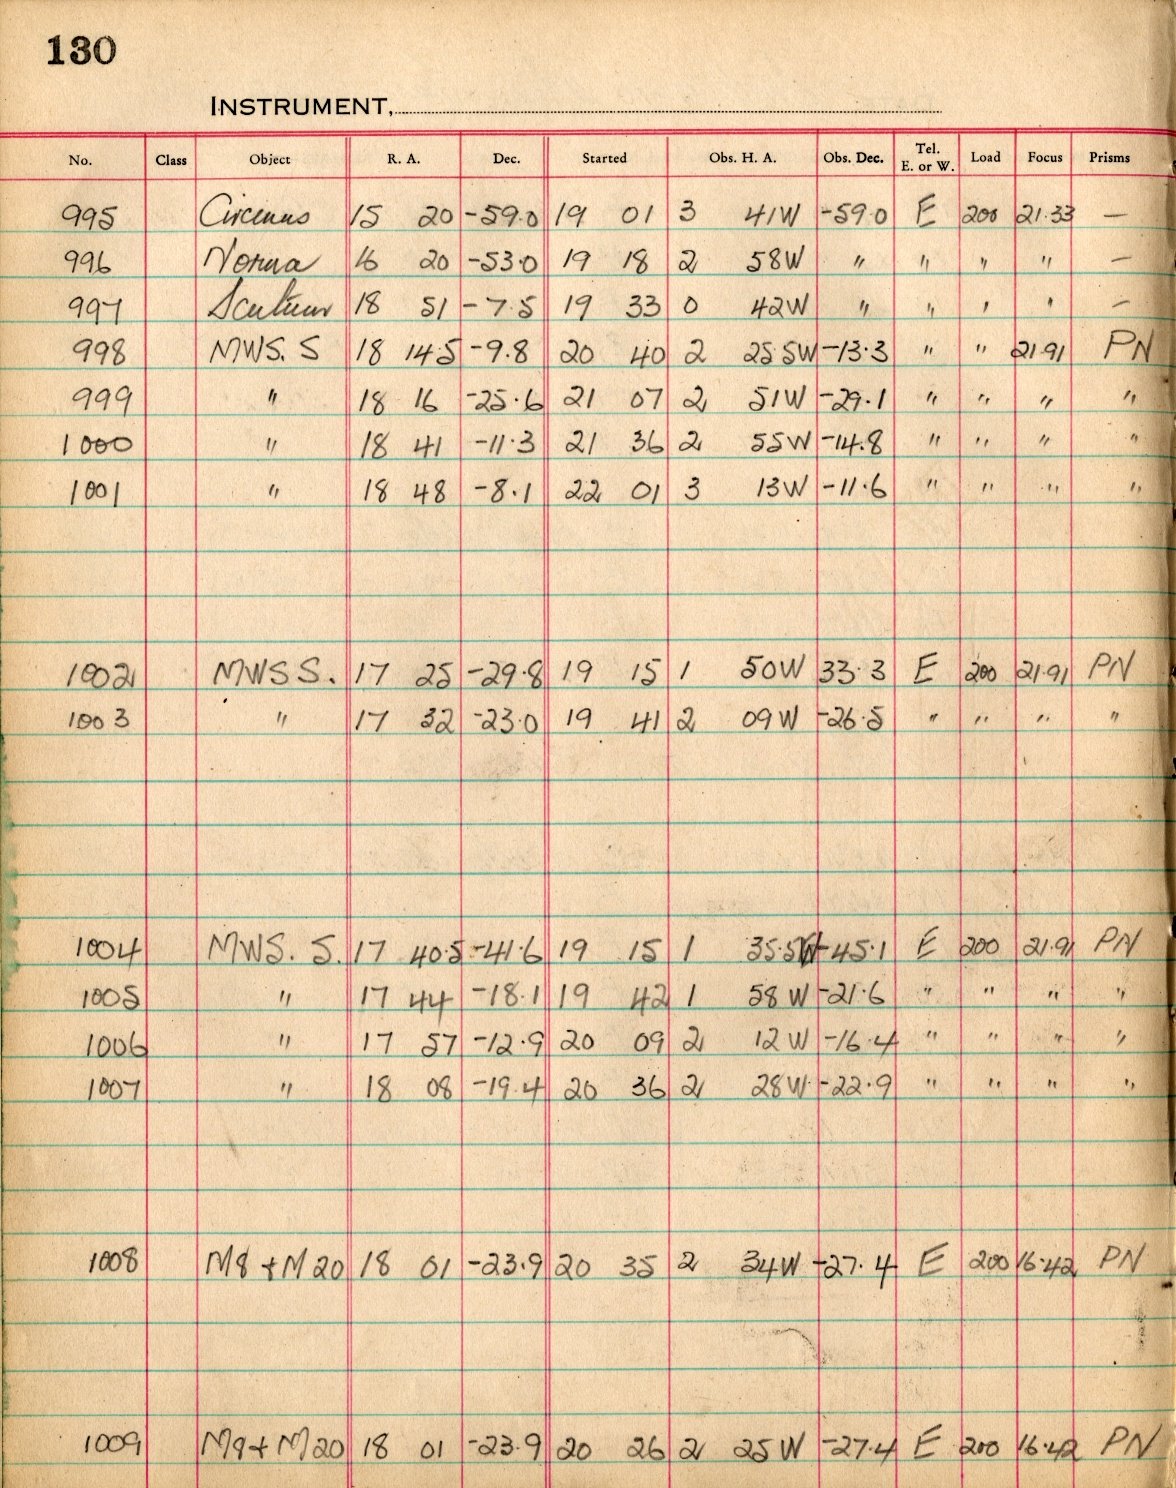 130
INSTRUMENT,
No. Class Object R. A. Dec. Started Obs. H. A. Obs. Dec. Tel. E. or W. Load Focus Prisms
995 Circinus 15 20 -59.0 19 01 3 41W -59.0 E 200 21.33 —
996 Norma 16 20 -53.0 19 18 2 58W " " " " —
997 Scutum 18 51 -7.5 19 33 0 42W " " " " —
998 MWS. S 18 14.5 -9.8 20 40 2 25.5W -13.3 " " 21.91 PN
999 " 18 16 -25.6 21 07 2 51W -29.1 " " " "
1000 " 18 41 -11.3 21 36 2 55W -14.8 " " " "
1001 " 18 48 -8.1 22 01 3 13W -11.6 " " " "
1002 MWS S. 17 25 -29.8 19 15 1 50W 33.3 E 200 21.91 PN
1003 " 17 32 -23.0 19 41 2 09W -26.5 " " " "
1004 MWS. S. 17 40.5 -41.6 19 15 1 35.5W -45.1 E 200 21.91 PN
1005 " 17 44 -18.1 19 42 1 58W -21.6 " " " "
1006 " 17 57 -12.9 20 09 2 12W -16.4 " " " "
1007 " 18 08 -19.4 20 36 2 28W -22.9 " " " "
1008 M8 + M20 18 01 -23.9 20 35 2 34W -27.4 E 200 16.42 PN
1009 M8 + M20 18 01 -23.9 20 26 2 25W -27.4 E 200 16.42 PN